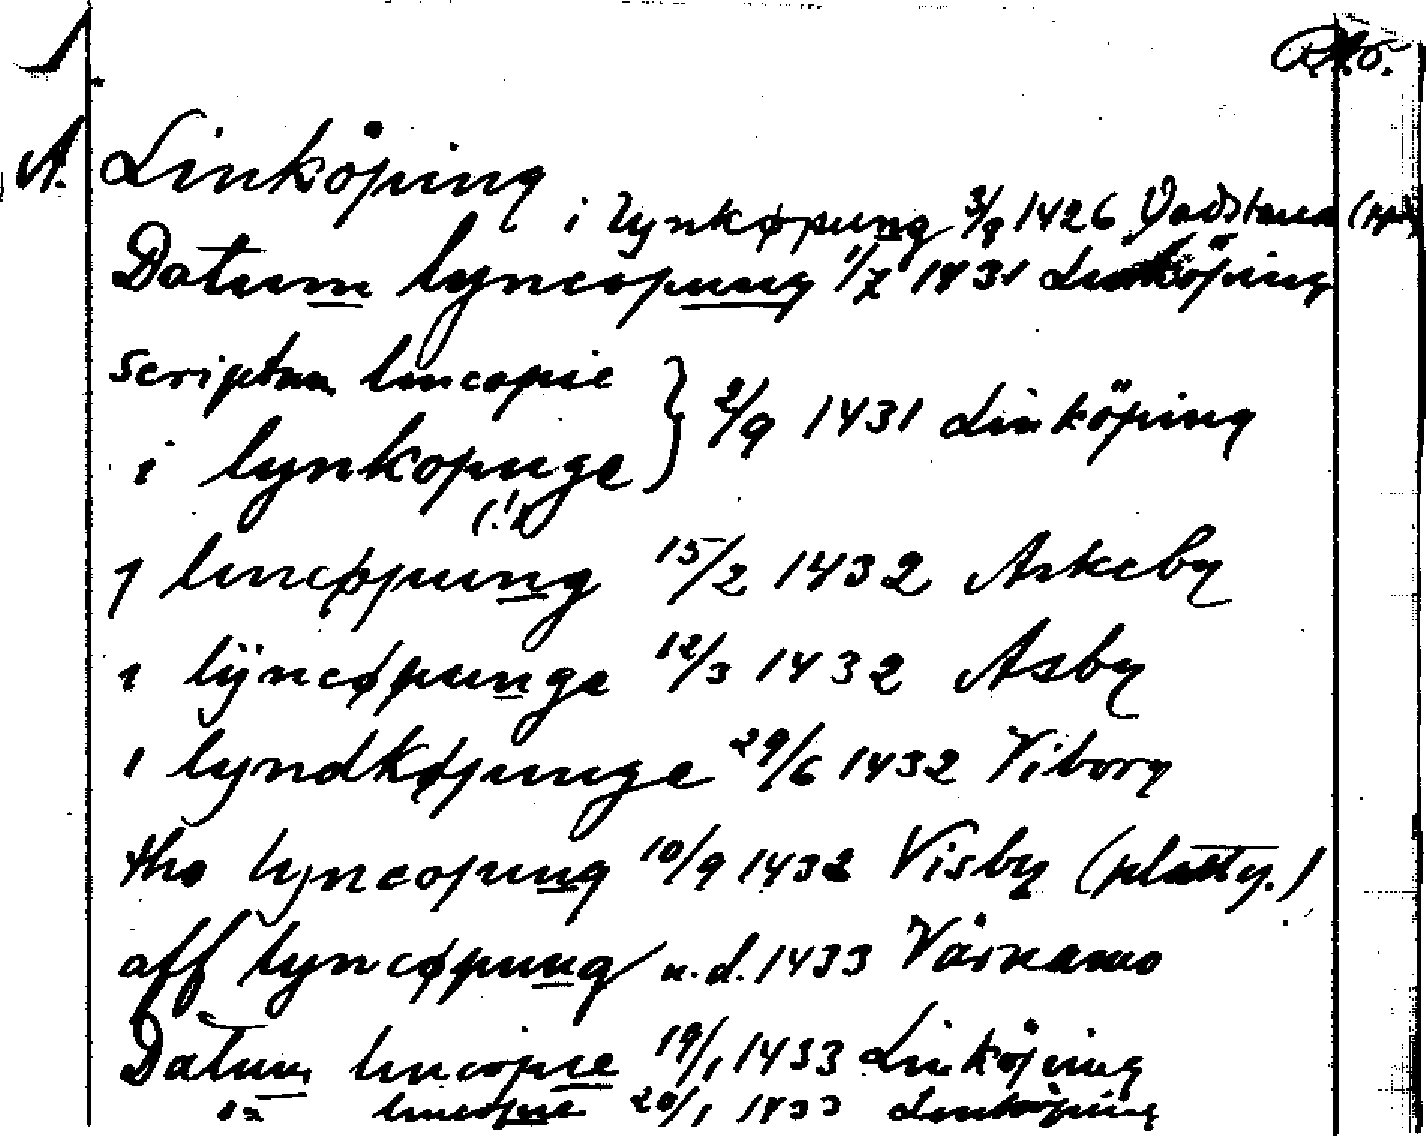 R.A.ö.
A. Linköping
i lynkøpung 3/8 1426 Vadstena
Datum lyncopung 1/7 1431 Linköping
scriptum lincopie
i lynkopuge } 2/9 1431 Linköping
(!)
j lincøpung 15/2 1432 Askeby
i lÿncøpunge 12/3 1432 Asby
i lyndkøpunge 29/6 1432 Viborg
tho lyncopung 10/9 1432 Visby (platty.)
aff lyncøpung u.d. 1433 Värnamo
Datum lincopie 19/1 1433 Linköping
lincopie 20/1 1433 Linköping